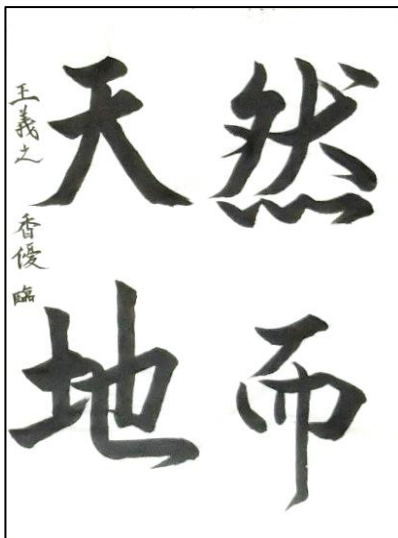 然而
天地
王羲之 香優 臨